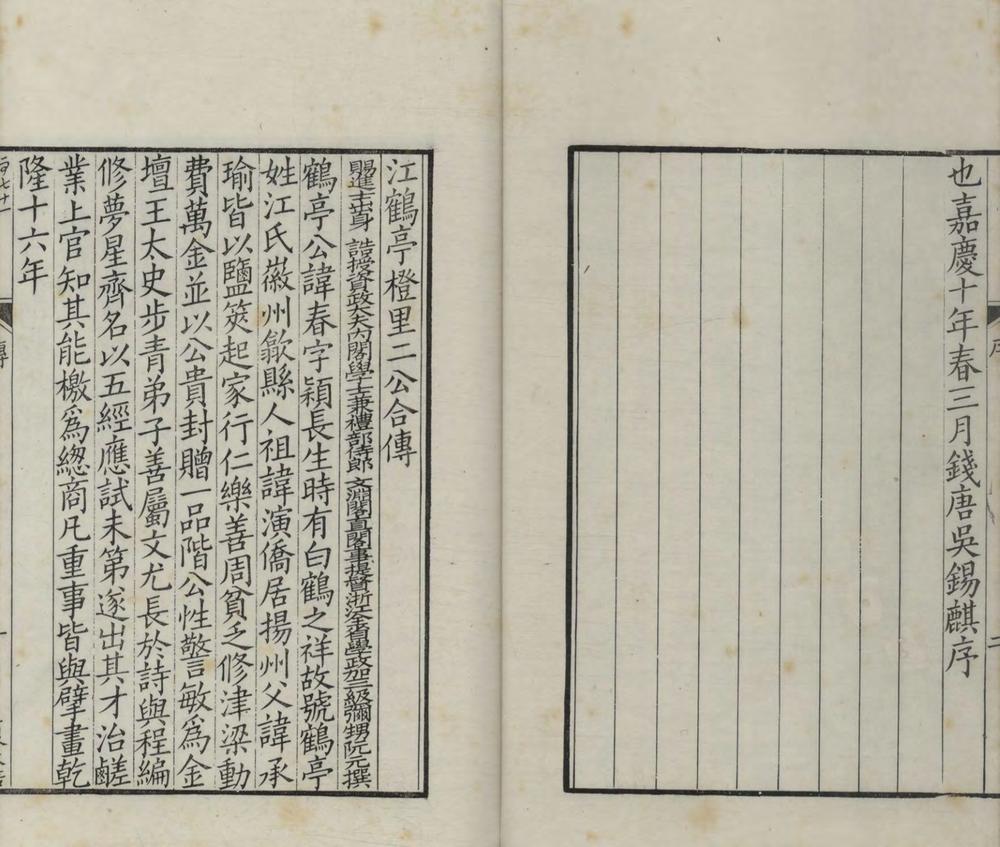 也嘉慶十年春三月錢唐吳錫麒序
江鶴亭橙里二公合傳
賜進士出身 誥授資政大夫內閣學士兼禮部侍郎 文淵閣直閣事提督浙江全省學政加三級彌甥阮元撰
鶴亭公諱春字穎長生時有白鶴之祥故號鶴亭
姓江氏徽州歙縣人祖諱演僑居揚州父諱承
瑜皆以鹽筴起家行仁樂善周貧乏修津梁動
費萬金並以公貴封贈一品階公性警敏爲金
壇王太史步青弟子善屬文尤長於詩與程編
修夢星齊名以五經應試未第遂出其才治鹺
業上官知其能檄爲總商凡重事皆與擘畫乾
隆十六年